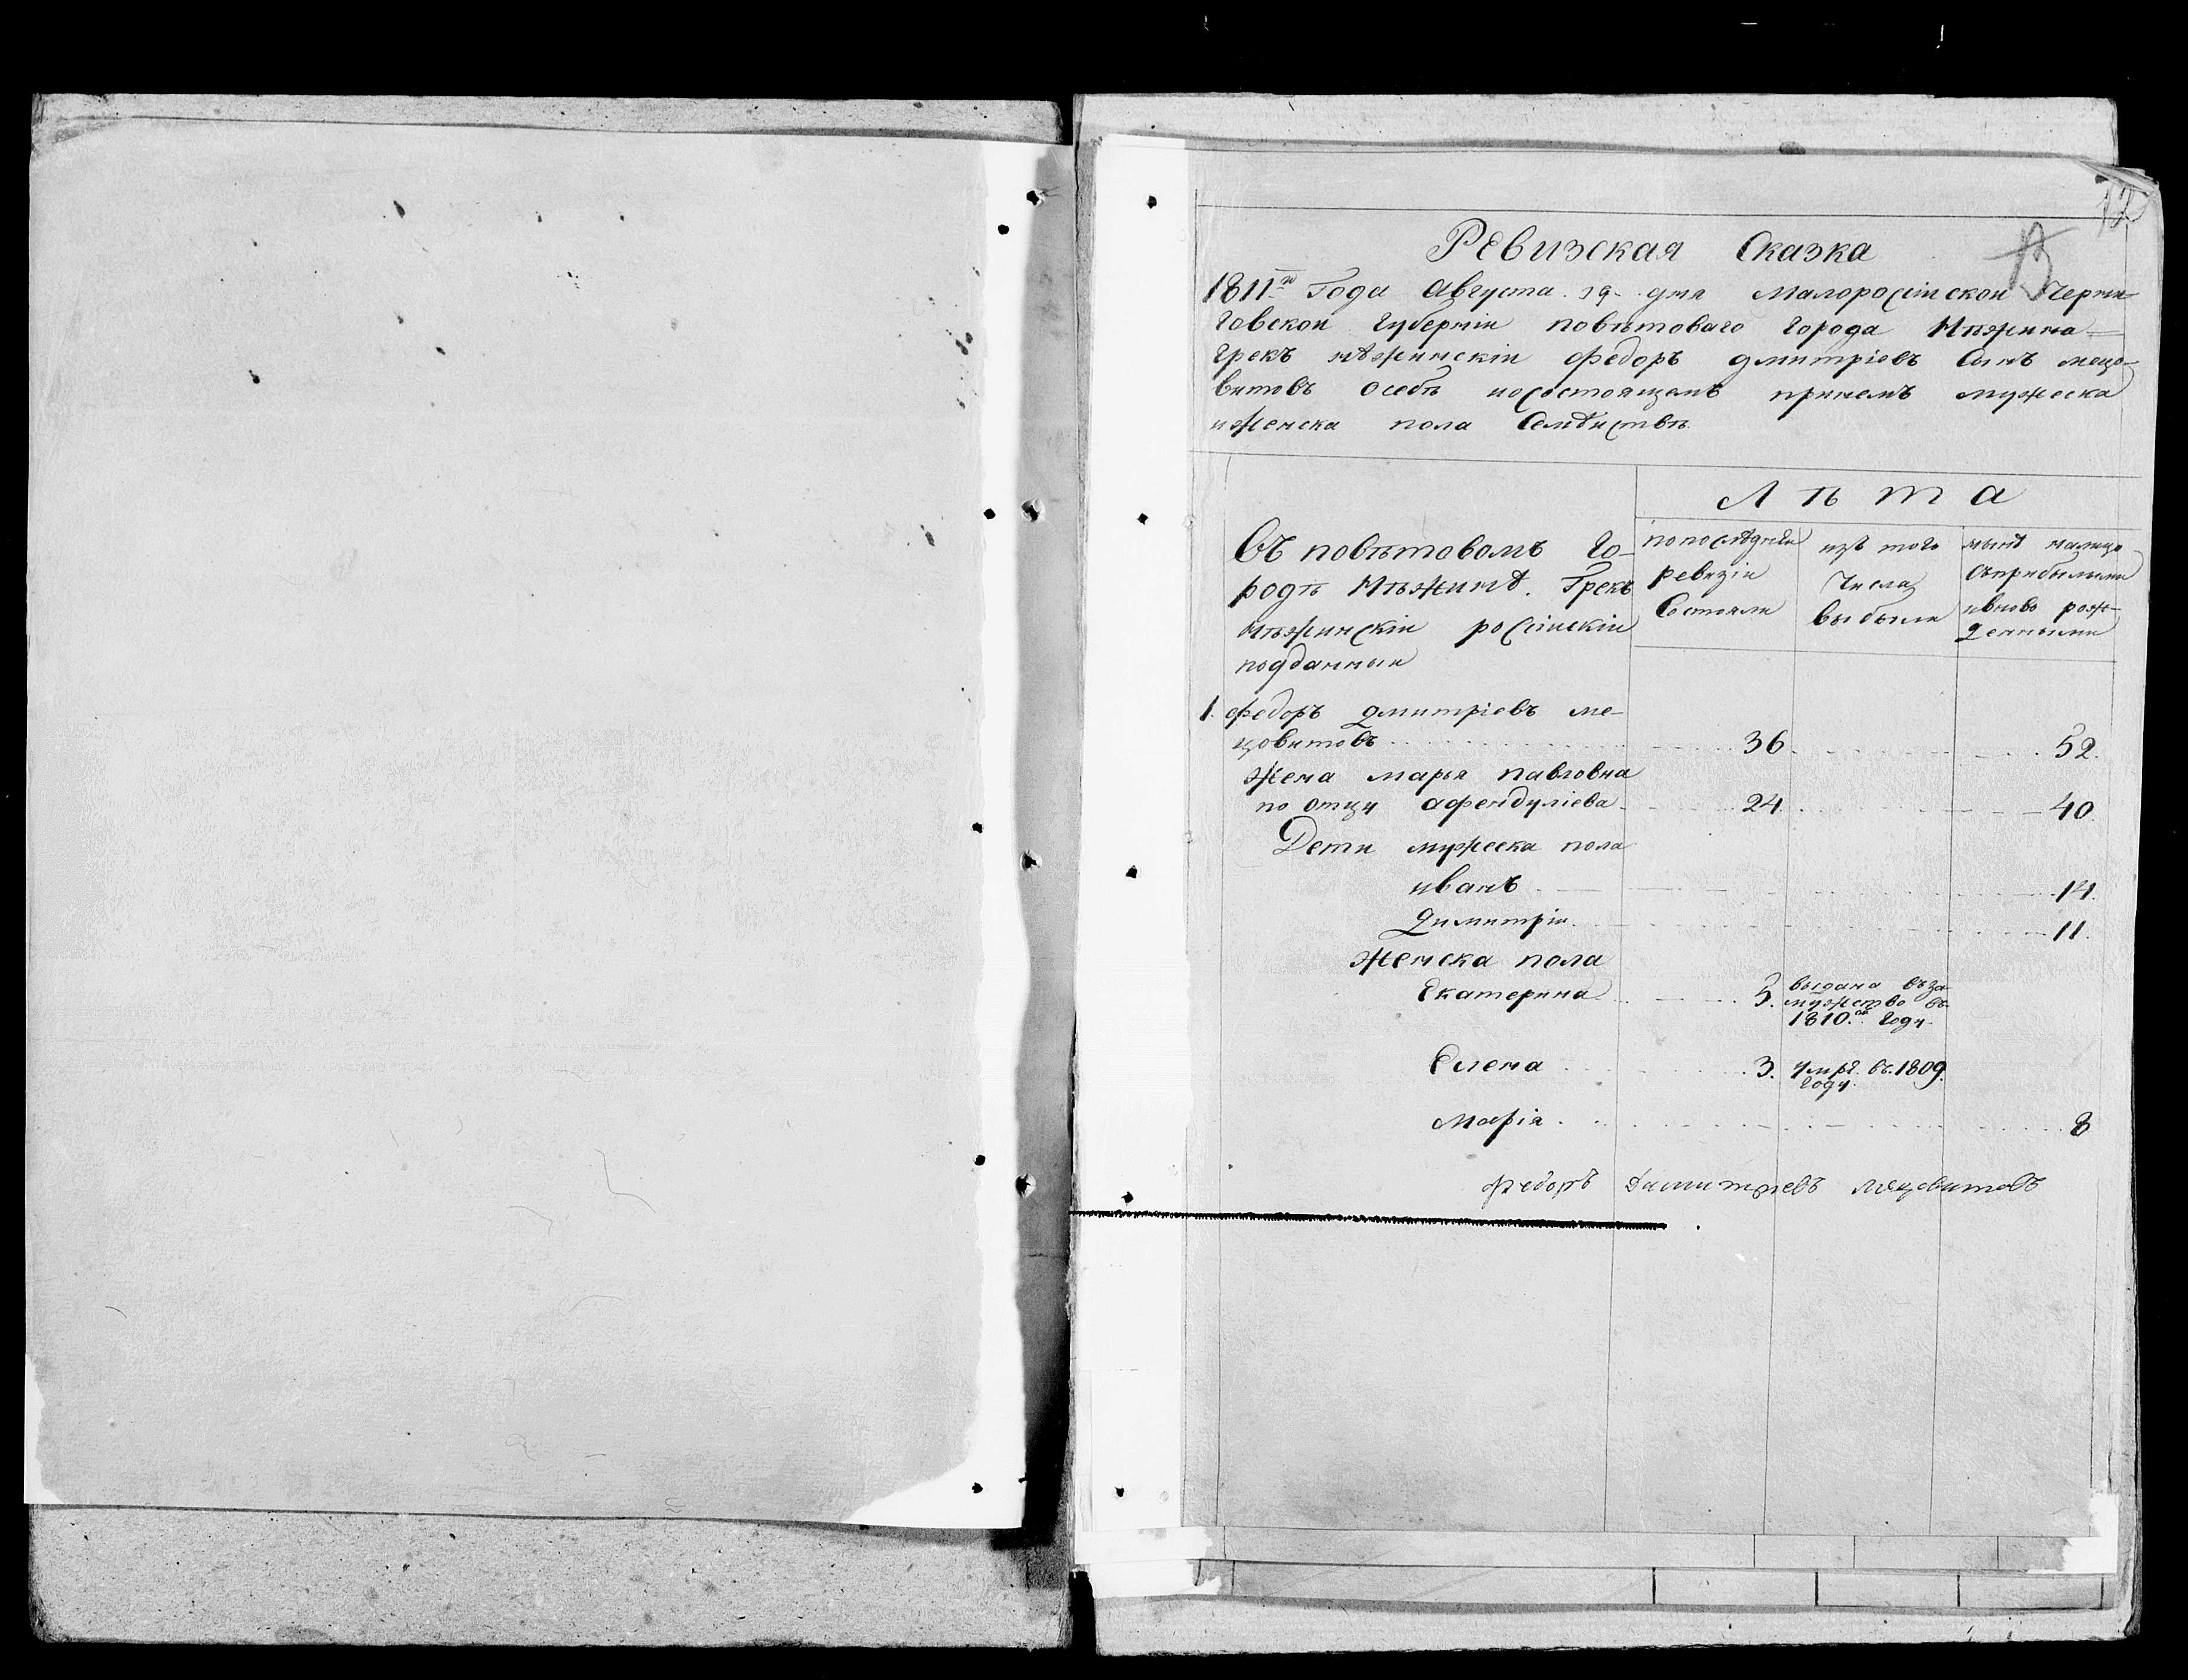 12
Ревизская Сказка
1811го Года августа 19 дня Малоросіискои Черни-
говскои Губерніи повѣтоваго города Нѣжина
грекъ нѣжинскіи федоръ дмитріевъ Сынъ мецо-
витовъ о себѣ и о состоящемъ при немъ мужеска
и женска пола Семѣиствѣ
Лѣта
Въ повѣтовомъ Го-
родѣ Нѣжинѣ. Грекъ
Нѣжинскіи росіискіи
подданныи
по послѣднеи
ревизіи
Состояли
изъ того
Числа
выбыли
нынѣ налицо
съприбылыми
ивновь рож-
денными
1. федоръ дмитріевъ ме-
цовитовъ 36. 52.
жена марья павловна
по отцу афендуліева 24. 40.
Дети мужеска пола
иванъ 14.
димитріи 11.
женска пола
Екатерина 5. выдана въ за-
мужство въ
1810.м Году
Елена 3. умре въ 1809.
Году
Марія 8
федоръ Димитриевъ мецовитовъ